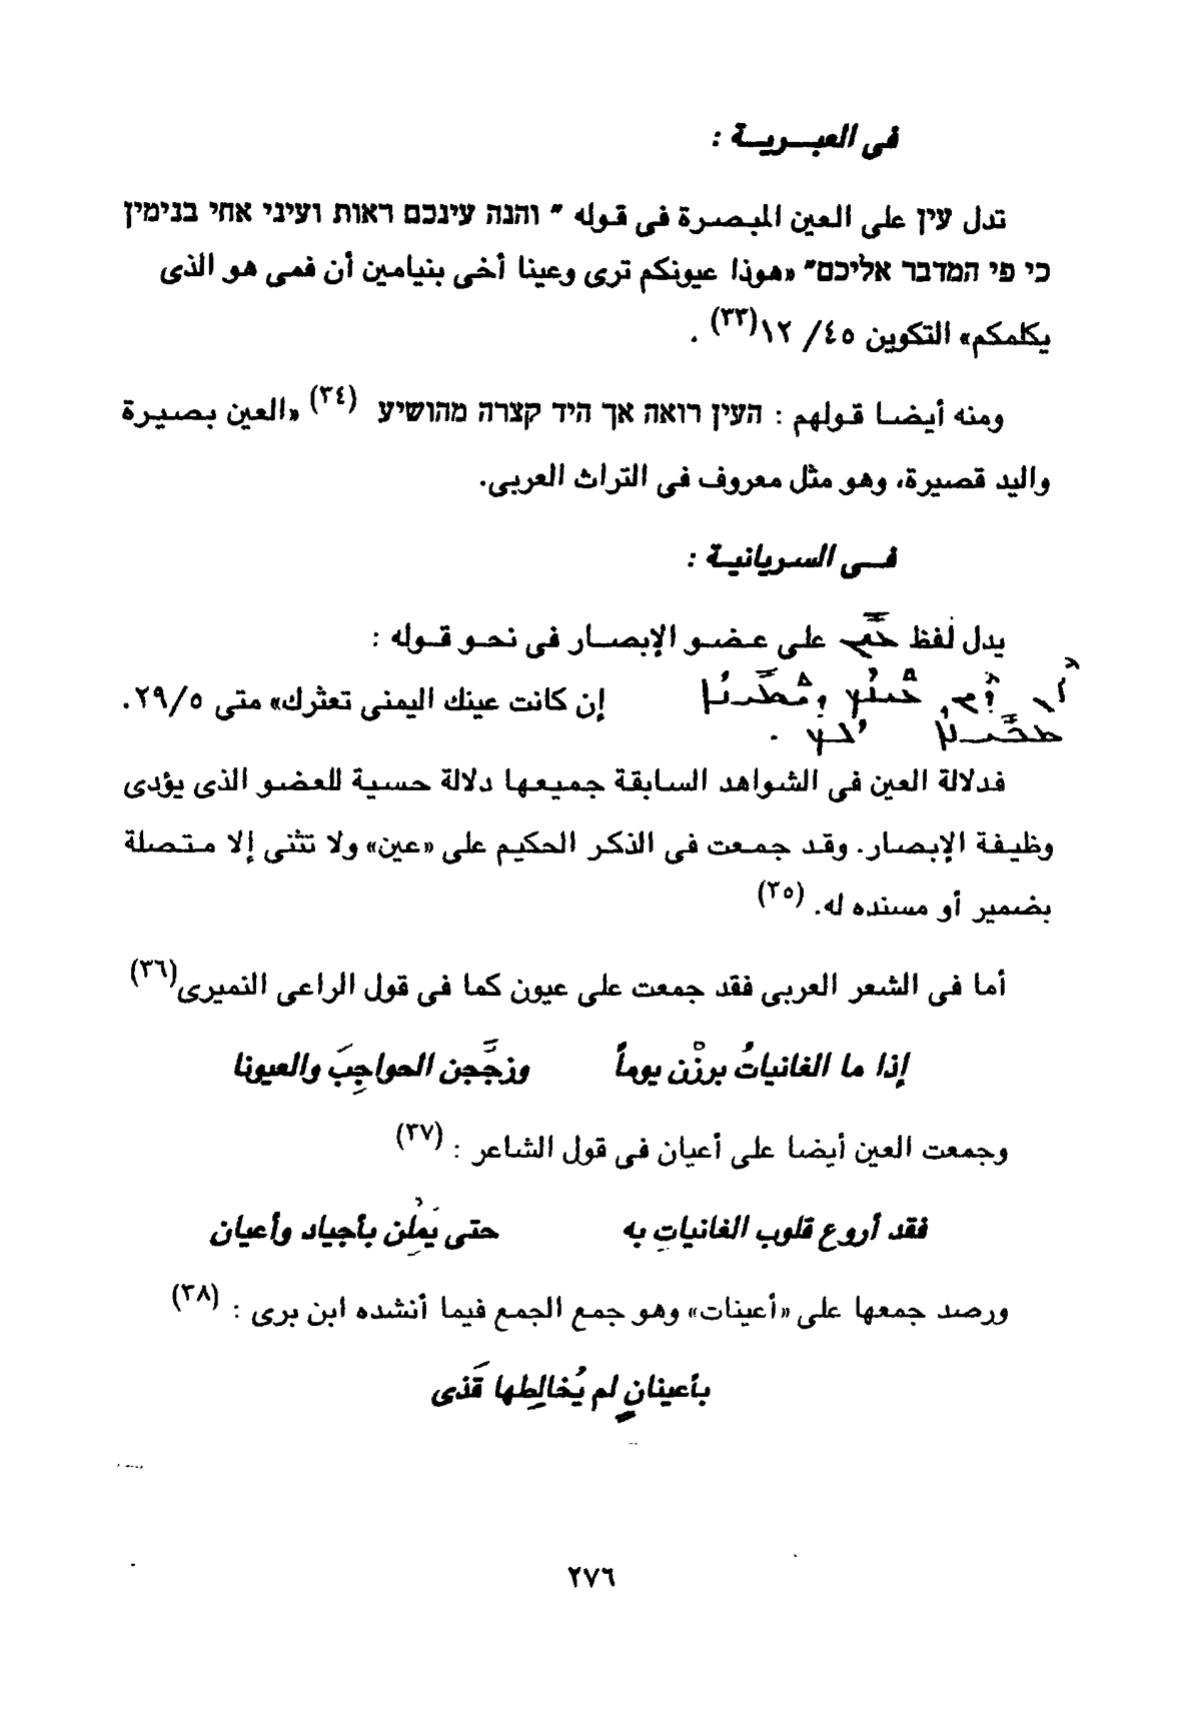 فى العبـــريــة :
تدل עין على العين المبصرة فى قوله " והנה עינכם ראות ועיני אחי בנימין
כי פי המדבר אליכם" «هوذا عيونكم ترى وعينا أخى بنيامين أن فمى هو الذى
يكلمكم» التكوين ٤٥/ ١٢(٣٣) .
ومنه أيضا قولهم : העין רואה אך היד קצרה מהושיע (٣٤) «العين بصيرة
واليد قصيرة، وهو مثل معروف فى التراث العربى.
فــى السريانية :
يدل لفظ على عضو الإبصار فى نحو قوله :
إن كانت عينك اليمنى تعثرك» متى ٢٩/٥.
فدلالة العين فى الشواهد السابقة جميعها دلالة حسية للعضو الذى يؤدى
وظيفة الإبصار. وقد جمعت فى الذكر الحكيم على «عين» ولا تثنى إلا متصلة
بضمير أو مسنده له. (٣٥)
أما فى الشعر العربى فقد جمعت على عيون كما فى قول الراعى النميرى(٣٦)
إذا ما الغانياتُ برزْن يوماً وزجَّجن الحواجِبَ والعيونا
وجمعت العين أيضا على أعيان فى قول الشاعر : (٣٧)
فقد أروع قلوب الغانياتِ به حتى يَمِلْن بأجياد وأعيان
ورصد جمعها على «أعينات» وهو جمع الجمع فيما أنشده ابن برى : (٣٨)
بأعينانٍ لم يُخالِطها قَذى
٢٧٦